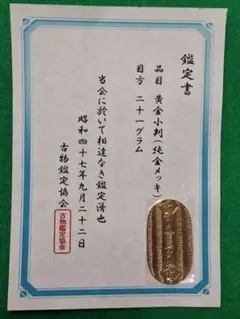 鑑定書
品目 黄金小判(純金メッキ)
目方 二十一グラム
当会に於いて相違なき鑑定済也
昭和四十七年九月二十二日
古物鑑定協会
古物鑑定協会